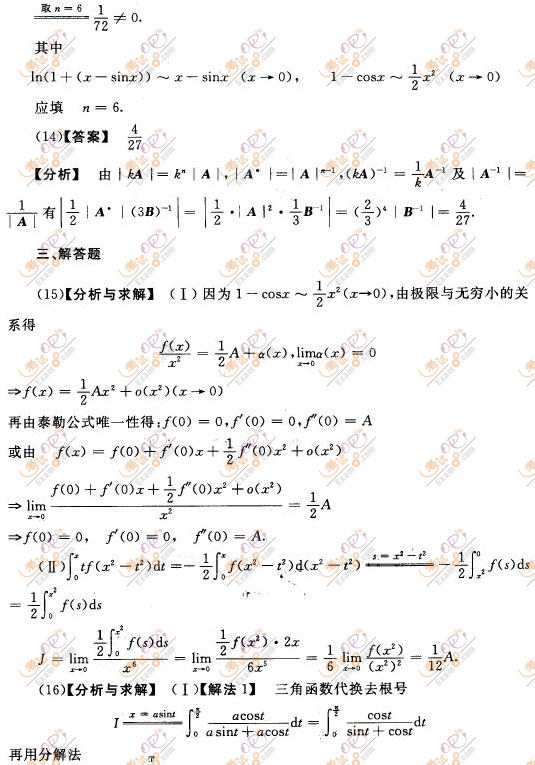 取 n = 6 1/72 ≠ 0.
其中
ln(1 + (x − sinx)) ~ x − sinx (x → 0), 1 − cosx ~ 1/2 x² (x → 0)
应填 n = 6.
(14)【答案】 4/27
【分析】 由 | kA | = kⁿ | A |, | A* | = | A |ⁿ⁻¹, (kA)⁻¹ = 1/k A⁻¹ 及 | A⁻¹ | =
1/| A | 有 | 1/2 | A* | (3B)⁻¹ | = | 1/2 · | A |² · 1/3 B⁻¹ | = (2/3)⁴ | B⁻¹ | = 4/27.
三、解答题
(15)【分析与求解】 (Ⅰ) 因为 1 − cosx ~ 1/2 x² (x→0), 由极限与无穷小的关
系得
f(x)/x² = 1/2 A + α(x), lim x→0 α(x) = 0
⇒ f(x) = 1/2 Ax² + o(x²) (x → 0)
再由泰勒公式唯一性得: f(0) = 0, f′(0) = 0, f″(0) = A
或由 f(x) = f(0) + f′(0)x + 1/2 f″(0)x² + o(x²)
⇒ lim x→0 (f(0) + f′(0)x + 1/2 f″(0)x² + o(x²))/x² = 1/2 A
⇒ f(0) = 0, f′(0) = 0, f″(0) = A.
(Ⅱ) ∫₀ˣ tf(x² − t²)dt = − 1/2 ∫₀ˣ f(x² − t²)d(x² − t²) s = x² − t² − 1/2 ∫_{x²}^0 f(s)ds
= 1/2 ∫_0^{x²} f(s)ds
J = lim x→0 (1/2 ∫_0^{x²} f(s)ds)/x⁶ = lim x→0 (1/2 f(x²) · 2x)/6x⁵ = 1/6 lim x→0 f(x²)/(x²)² = 1/12 A.
(16)【分析与求解】 (Ⅰ)【解法 1】 三角函数代换去根号
I x = asint ∫_0^{π/2} acost/(asint + acost) dt = ∫_0^{π/2} cost/(sint + cost) dt
再用分解法